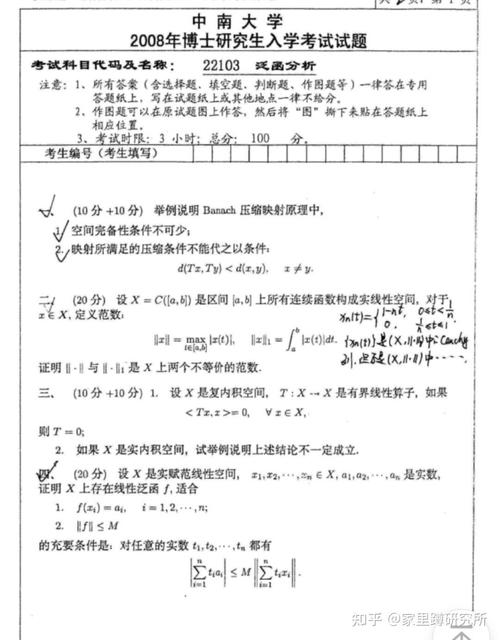 中南大学
2008年博士研究生入学考试试题
考试科目代码及名称： 22103 泛函分析
注意：1、所有答案（含选择题、填空题、判断题、作图题等）一律答在专用
答题纸上，写在试题纸上或其他地点一律不给分。
2、作图题可以在原试题图上作答，然后将“图”撕下来贴在答题纸上
相应位置。
3、考试时限：3 小时；总分： 100 分。
考生编号（考生填写）
一、 (10 分 +10 分) 举例说明 Banach 压缩映射原理中，
1. 空间完备性条件不可少；
2. 映射所满足的压缩条件不能代之以条件：
d(Tx,Ty) < d(x,y), x ≠ y.
二、 (20 分) 设 X = C([a,b]) 是区间 [a,b] 上所有连续函数构成实线性空间，对于
x ∈ X, 定义范数：
‖x‖ = max_{t∈[a,b]} |x(t)|, ‖x‖₁ = ∫_a^b |x(t)|dt.
xn(t)={1-nt, 0≤t≤1/n
0, 1/n≤t≤1
{xn(t)}是(X,‖·‖₁)中Cauchy
列, 但不是(X,‖·‖)中-----
证明 ‖·‖ 与 ‖·‖₁ 是 X 上两个不等价的范数.
三、 (10 分 +10 分) 1. 设 X 是复内积空间， T : X → X 是有界线性算子，如果
< Tx, x >= 0, ∀ x ∈ X,
则 T = 0;
2. 如果 X 是实内积空间，试举例说明上述结论不一定成立.
四、 (20 分) 设 X 是实赋范线性空间， x₁, x₂, ⋯, xₙ ∈ X, a₁, a₂, ⋯, aₙ 是实数，
证明 X 上存在线性泛函 f, 适合
1. f(xᵢ) = aᵢ, i = 1, 2, ⋯, n;
2. ‖f‖ ≤ M
的充要条件是：对任意的实数 t₁, t₂, ⋯, tₙ 都有
|∑_{i=1}^n tᵢaᵢ| ≤ M ‖∑_{i=1}^n tᵢxᵢ‖.
知乎 @家里蹲研究所